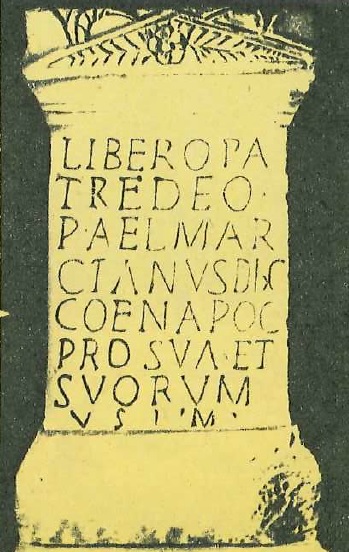 LIBERO PA
TRE DEO ·
P · AEL MAR
CIANVS DISC
COENAPOC
PRO SVA · ET
SVORVM
V S L · M ·